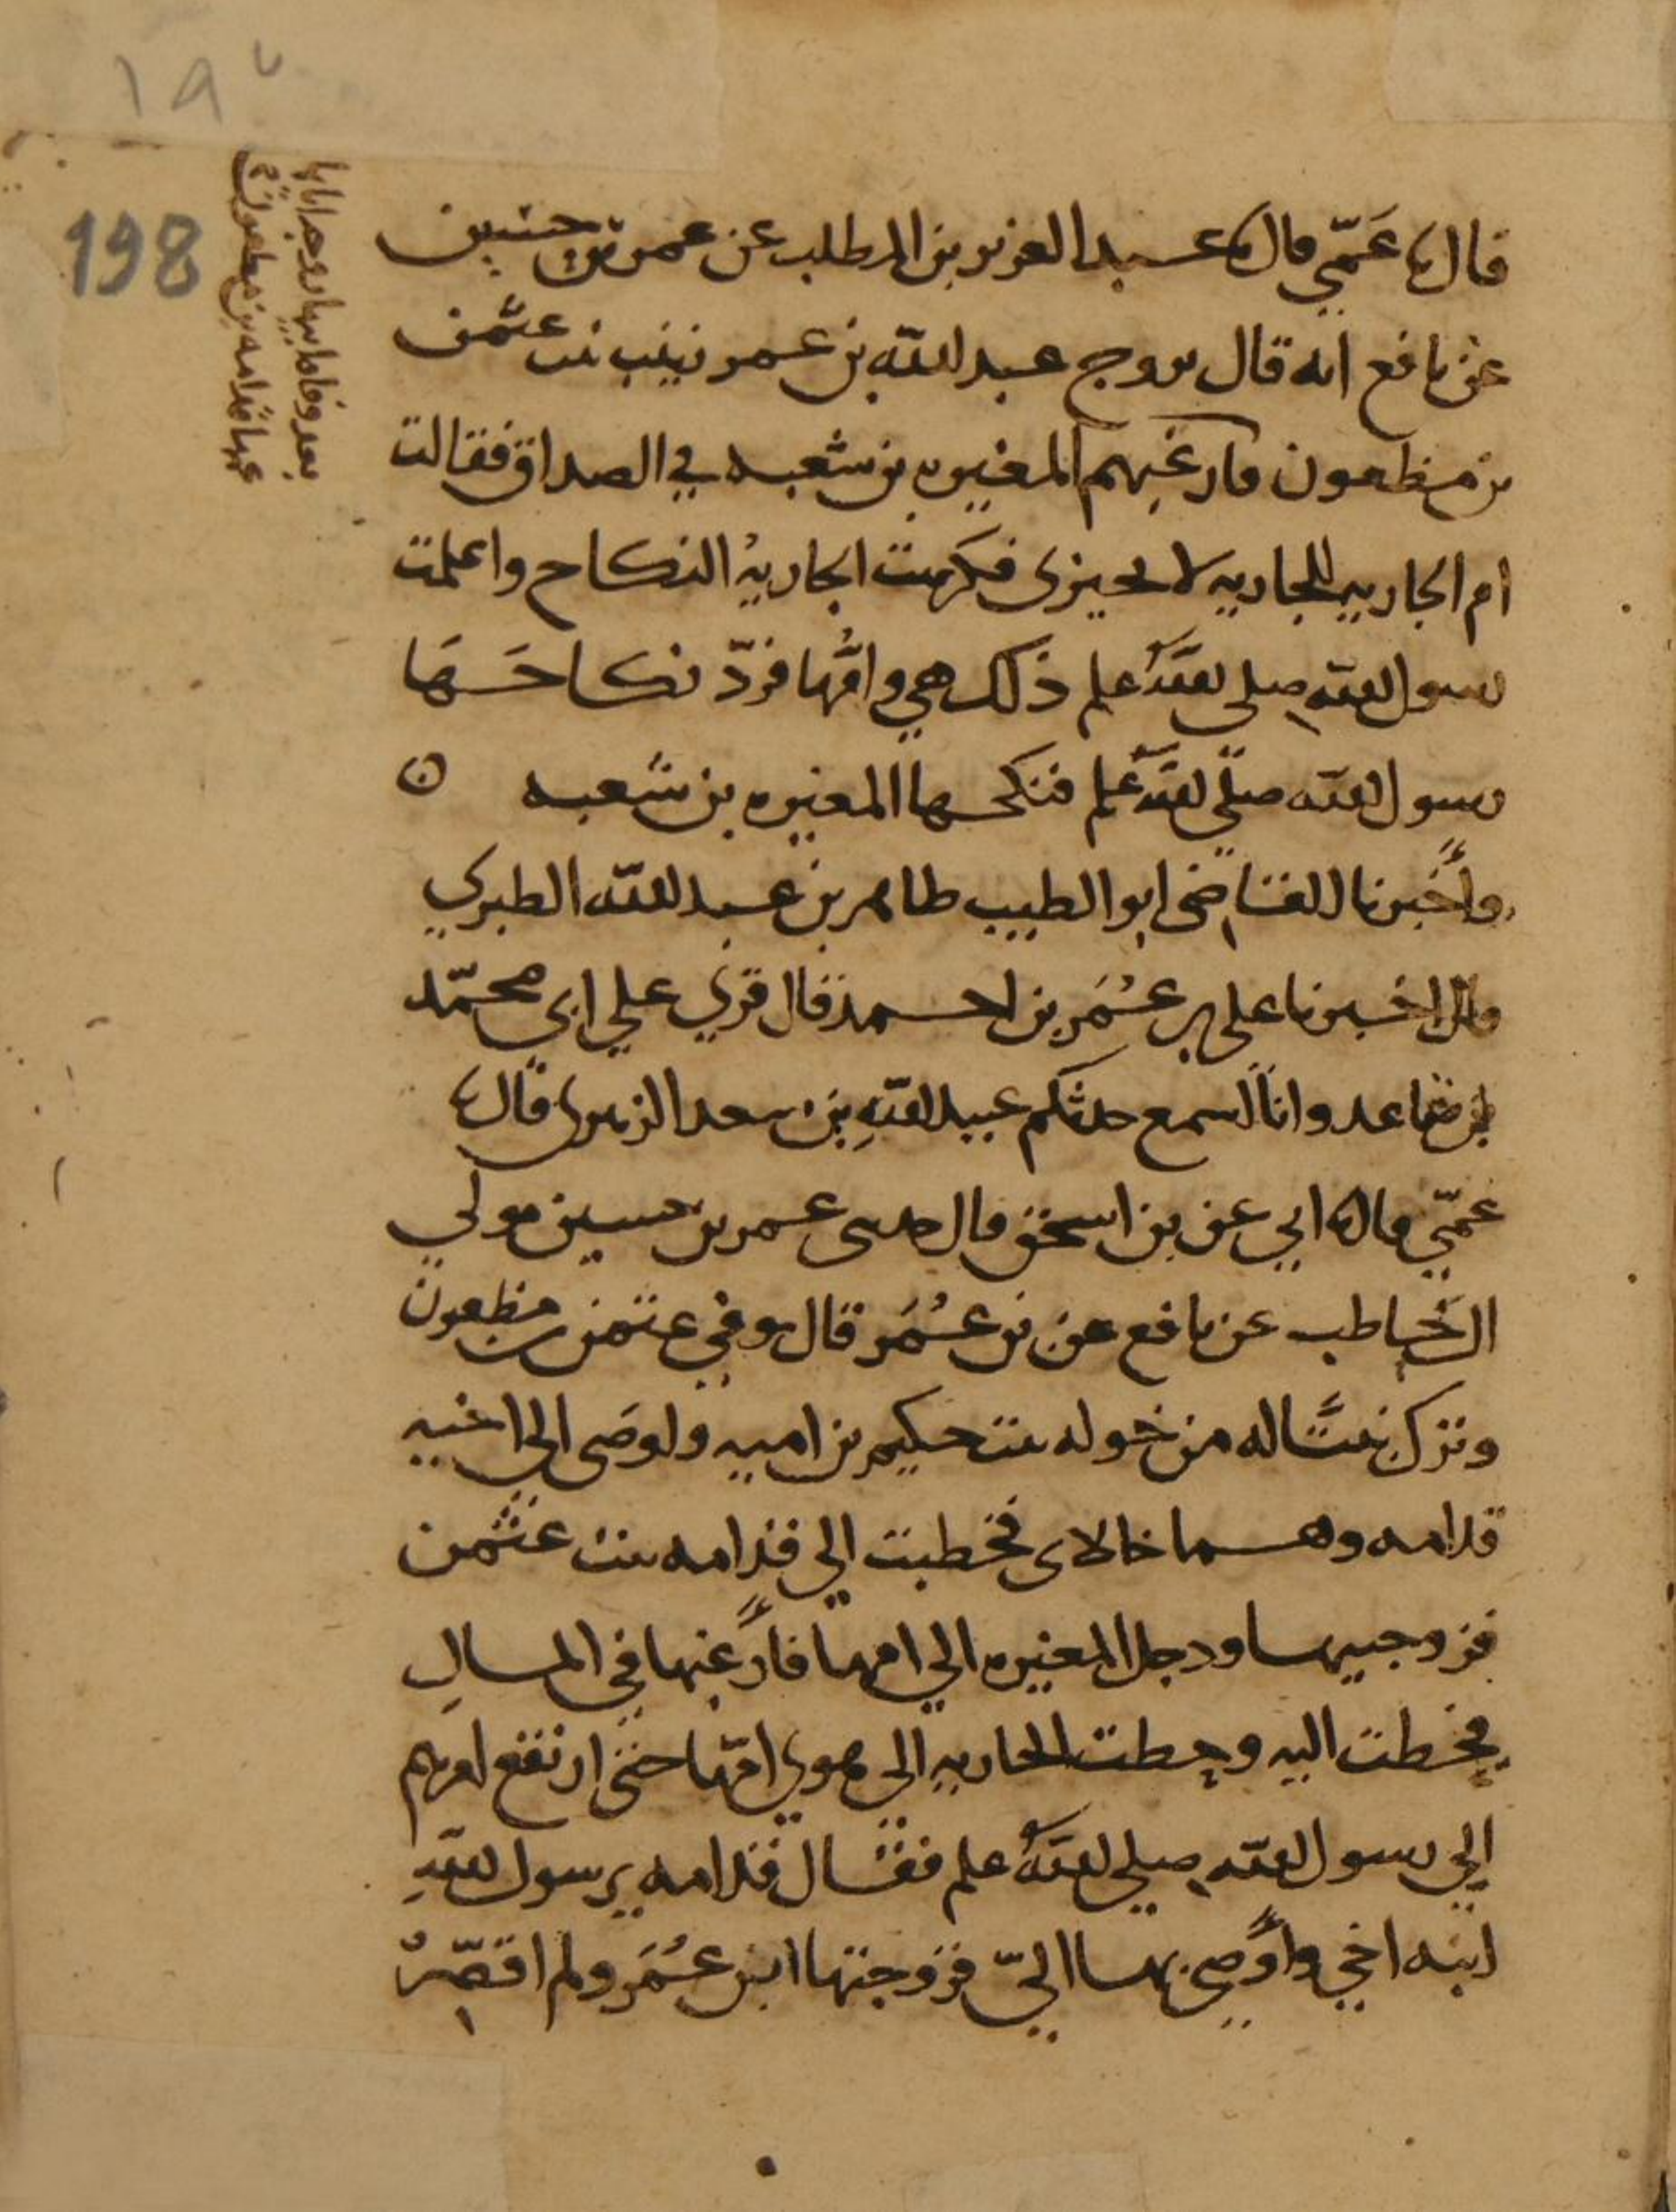 قال نا عَمّي قال نا عبد العزيز بن المطلب عن عمر بن حسين
عن نافع انه قال تزوج عبد الله بن عمر زينب بنت عثمن
بن مظعون فارغبهم المغيره بن شعبه في الصداق فقالت
ام الجاريه للجاريه لا تجيزى فكرهت الجاريهُ النكاح واعلمت
رسول الله صلى اللهُ علم ذلك هي وامُّها فردّ نكاحَها
رسول الله صلّى الله علم فنكحها المغيره بن شعبه ه
وأخبرنا القاضى ابو الطيب طاهر بن عبد الله الطبري
قال اخبرنا على بن عُمَر بن احمد قال قرى على ابى محمّد
بن صاعد وانا اسمع حدثكم عبيد اللهِ بن سعد الزهرى قال نا
عمّي قال نا ابي عن بن اسحق قال حدثنى عمر بن حسين مولي
ال حَاطب عن نافع عن بن عُمَر قال توفي عثمن بن مظعون
وترك بنتًا له من خوله بنت حكيم بن اميه واوصَى الى اخيه
قدامه وهما خالاى فخطبت الي قدامه بنت عثمن
فزوجنيها ودخل المغيره الي امها فأرغبها في المالِ
فحطت اليه وحطت الجاريه الى هوى امّها حتى ارتفع امرهم
الي رسول الله صلي اللهُ علم فقال قدامه يرسول اللهِ
ابنه اخي وأوصى بها اليّ فزوجتها ابن عُمَر ولم اقصّرْ
بعد وفاه ابيها زوجه اياها
عمها قدامه بن مطعون
198
١٩٨